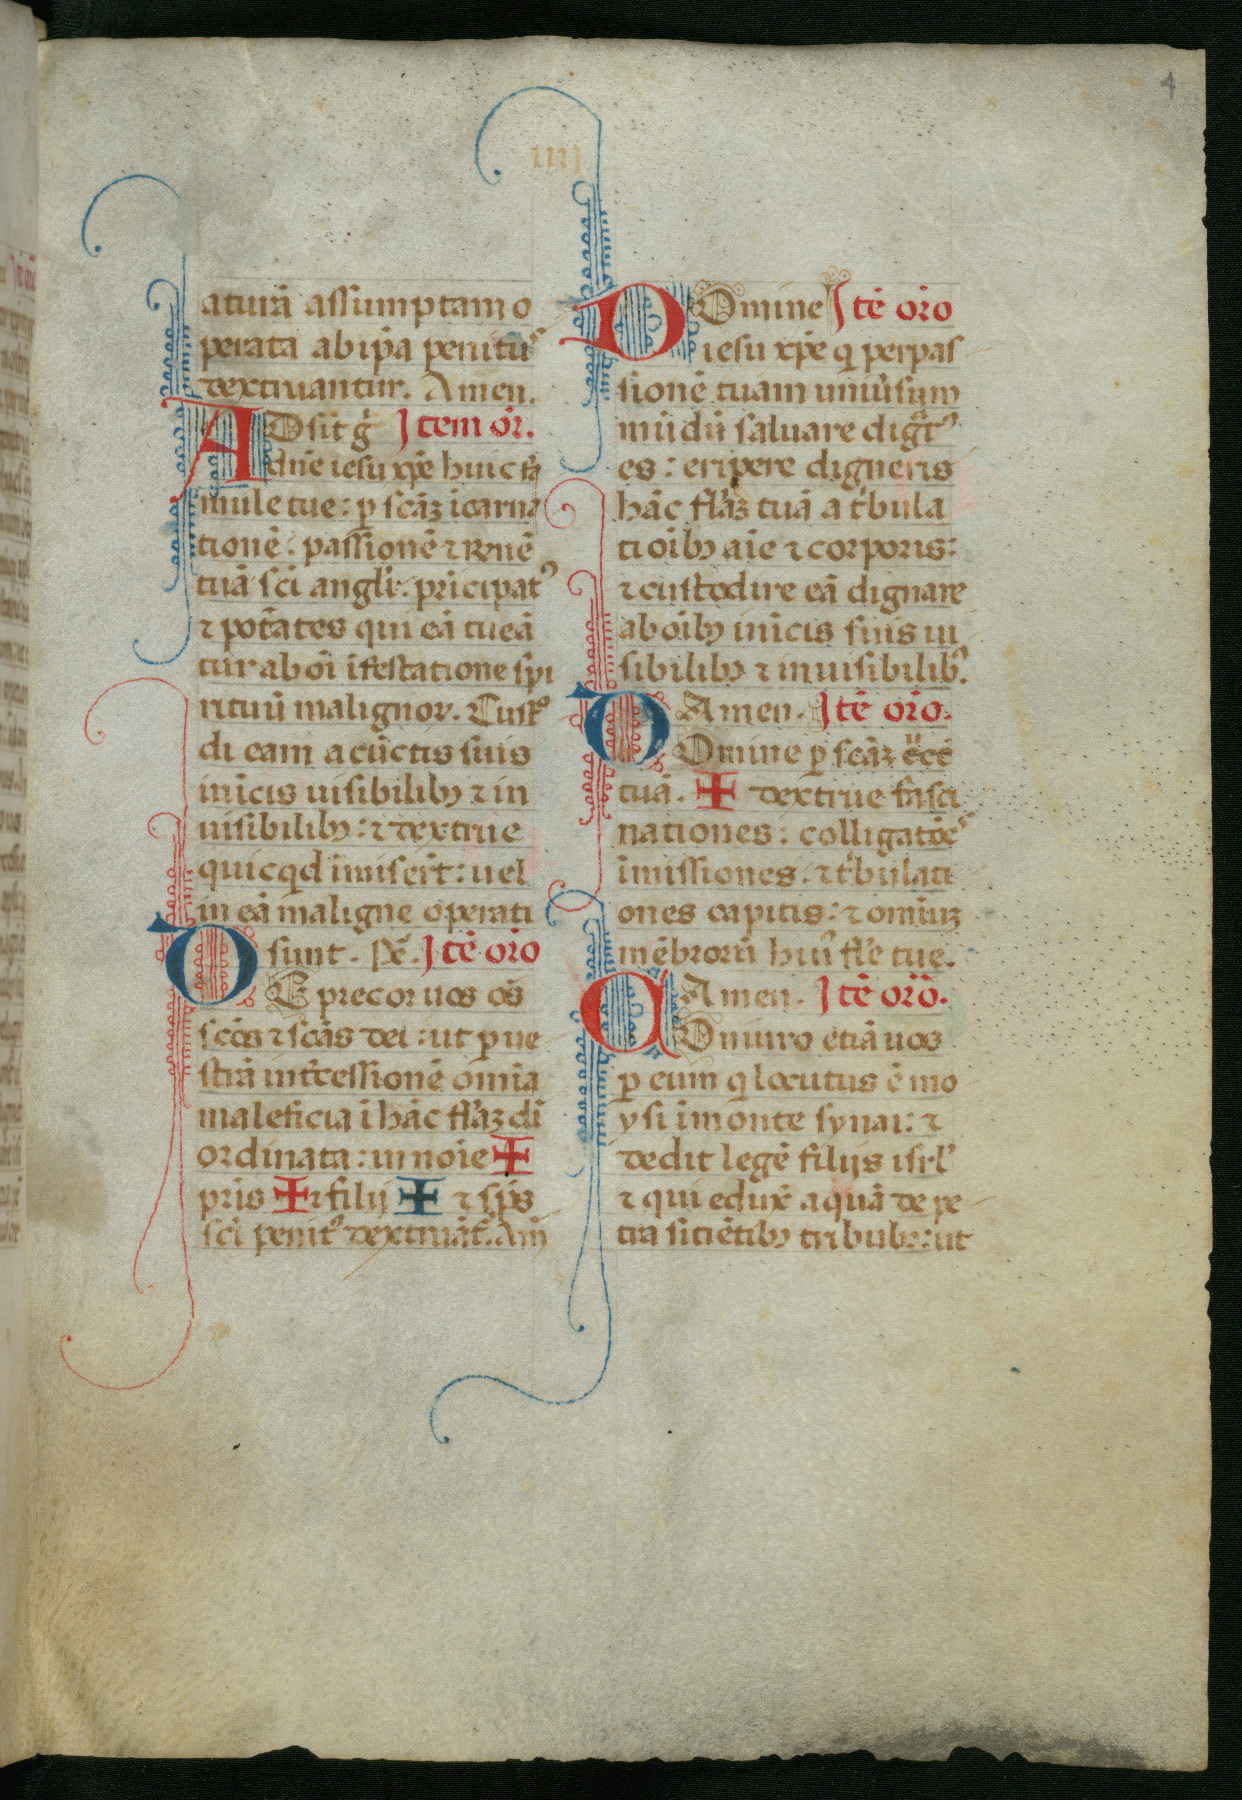 4
iiii
aturā assumptam o
perata ab ip̄a penitu᷒
dextruantur. Amen.
ADsit q̄s Item or̄.
dn̄e iesu xp̄e huic fa
mule tue: ꝑ scāꝫ īcarna
tionē: passionē ⁊
tuā sc̄i angl̓i: pricipat᷒
⁊ pot̄ates qui eā tueā
tur ab oī īfestatione spi
rituū malignoꝝ. Custo
di eam a cūctis suis
inīcis uisibilibꝫ ⁊ in
uisibilibꝫ: ⁊ dextrue
quicqd īmiserīt: uel
in eā maligne operati
sunt. Itē orō
DEprecor uos oēs
scōs ⁊ scās dei: ut ꝑ ue
strā int̄cessionē omīa
maleficia ī hāc fl̓aꝫ dī
ordinata: in noīe ✠
pr̄is ✠ ⁊ filij ✠ ⁊ sp̄s
sc̄i penit᷒ dextruāt᷒. Am̄
DOmine Itē orō
iesu xp̄e q̇ per pas
sionē tuam uniu̓sum
mūdū saluare digt᷒
es: eripere digneris
hāc fl̓aꝫ tuā a tͥbula
tioībꝫ aīe ⁊ corporis:
⁊ custodire eā dignare
ab oībꝫ inīcis suis ui
sibilibꝫ ⁊ inuisibilibꝫ.
Amen. Itē orō.
DOmine ꝑ scāꝫ c̈ce
tuā. ✠ dextrue fasci
nationes: colligatōes
īmissiones: ⁊ tͥbulati
ones capitis: ⁊ omīuꝫ
mēbrorū hui᷒ fl̓e tue.
Amen. Itē orō.
COniuro etiā uos
ꝑ eum q̇ locutus ē mo
ysi īmonte synai: ⁊
dedit legē filijs isrl̓
⁊ qui eduxͭ aquā de pe
tra sitiētibꝫ tribubꝫ: ut